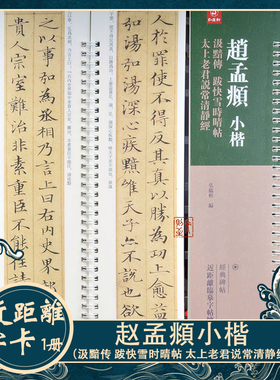 人於罪使不得反其真以勝為功上愈益
弘湯弘湯深心疾黯唯天子亦不說也欲
之以事弘為丞相乃言上曰右內史界部
貴人宗室難治非素重臣
趙孟頫 小楷
汲黯傳 跋快雪時晴帖
太上老君說常清靜經
經典碑帖
近距離臨摹字帖
近距離
字卡 1册
赵孟頫小楷
（汲黯传 跋快雪时晴帖 太上老君说常清静经